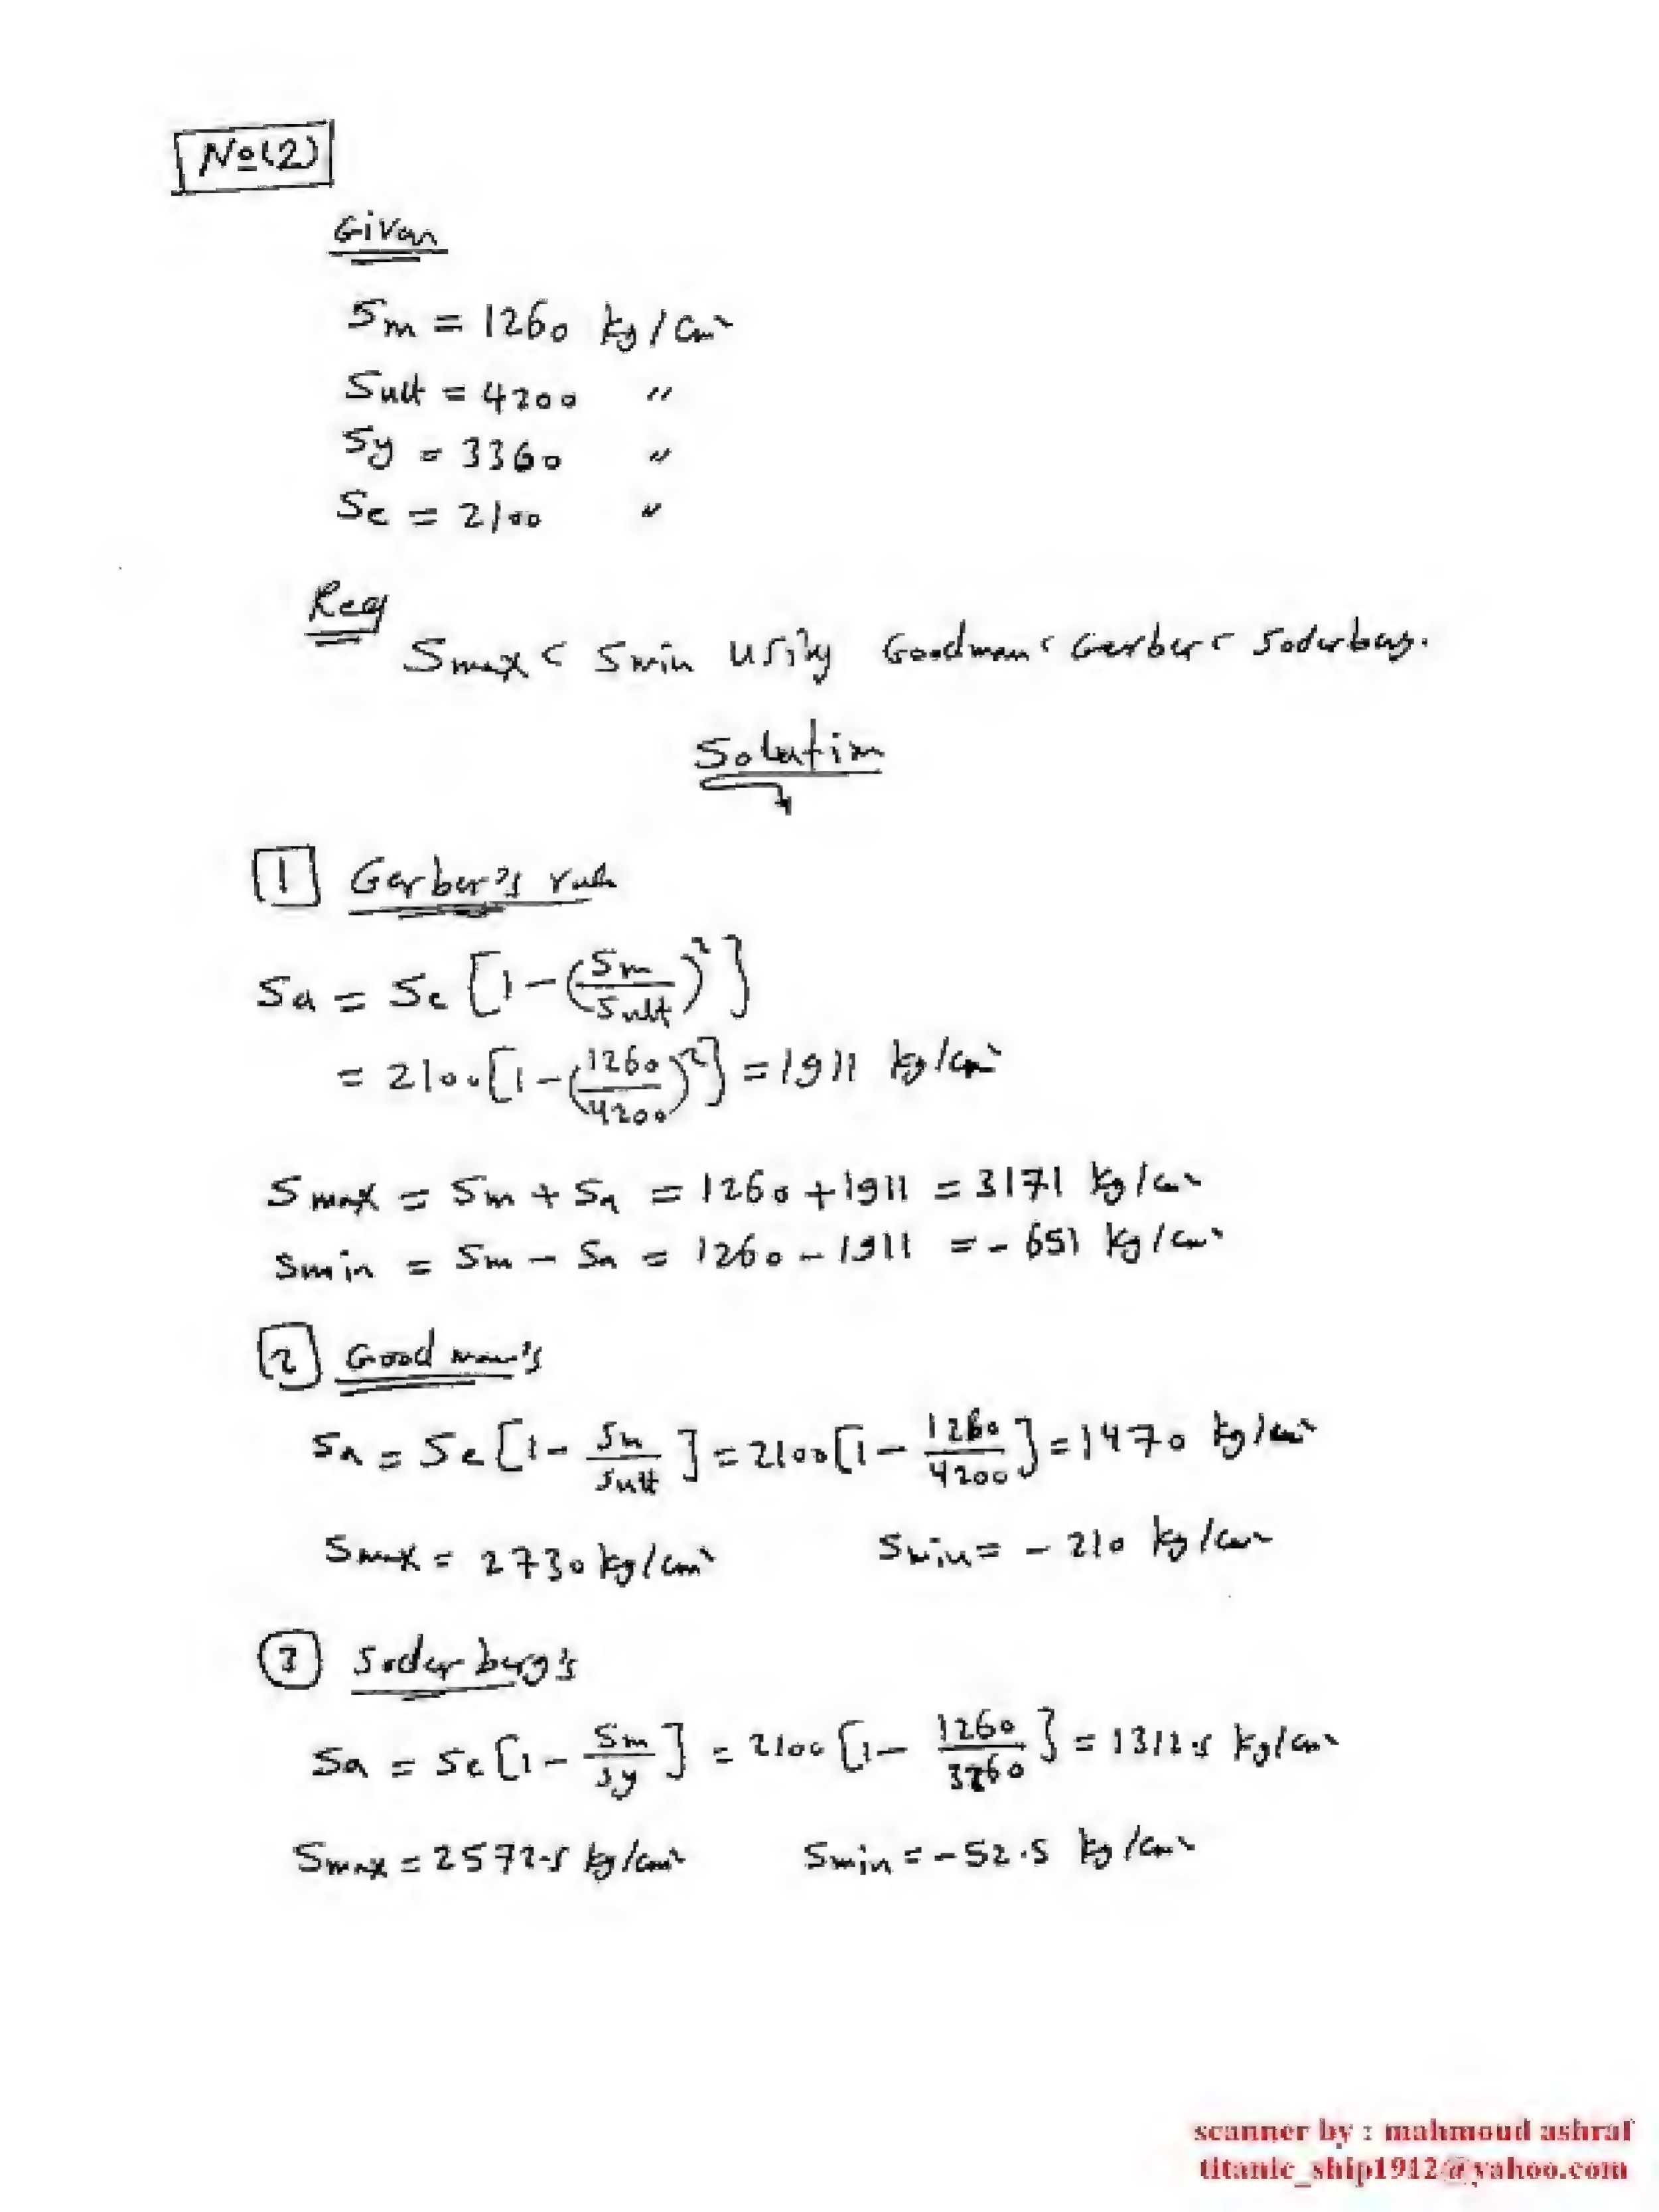 No(2)
Given
Sm = 1260 kg/cm²
Sult = 4200 "
Sy = 3360 "
Se = 2100 "
Req
Smax < Smin using Goodman < Gerber < Soderberg.
Solution
1 Gerber's rule
Sa = Se [1 - (Sm/Sult)²]
= 2100 [1 - (1260/4200)²] = 1911 kg/cm²
Smax = Sm + Sa = 1260 + 1911 = 3171 kg/cm²
Smin = Sm - Sa = 1260 - 1911 = - 651 kg/cm²
2 Goodman's
Sa = Se [1 - Sm/Sult] = 2100 [1 - 1260/4200] = 1470 kg/cm²
Smax = 2730 kg/cm² Smin = - 210 kg/cm²
3 Soderberg's
Sa = Se [1 - Sm/Sy] = 2100 [1 - 1260/3360] = 1312.5 kg/cm²
Smax = 2572.5 kg/cm² Smin = - 52.5 kg/cm²
scanner by : mahmoud ashraf
titanic_ship1912@yahoo.com